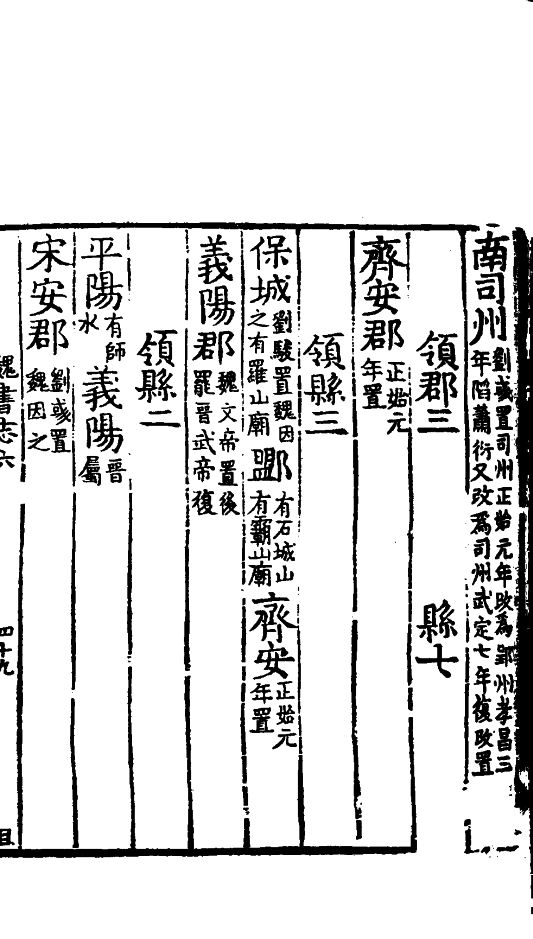 南司州劉彧置司州正始元年改為郢州孝昌三年陷蕭衍又改為司州武定七年復改置
領郡三 縣七
齊安郡正始元年置
領縣三
保城劉駿置魏因之有羅山廟 鄳有石城山有霸山廟 齊安正始元年置
義陽郡魏文帝置後罷晉武帝復
領縣二
平陽有師水 義陽晉屬
宋安郡劉彧置魏因之
魏書志六 四十九